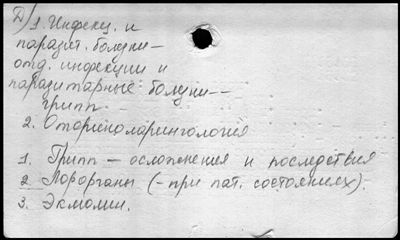 Д/1. Инфекц. и
паразит. болезни —
отд. инфекции и
паразитарные болезни --
грипп.
2. Оториноларингология
1. Грипп — осложнения и последствия
2. Лорорганы (-при пат. состояниях).
3. Экмолин.